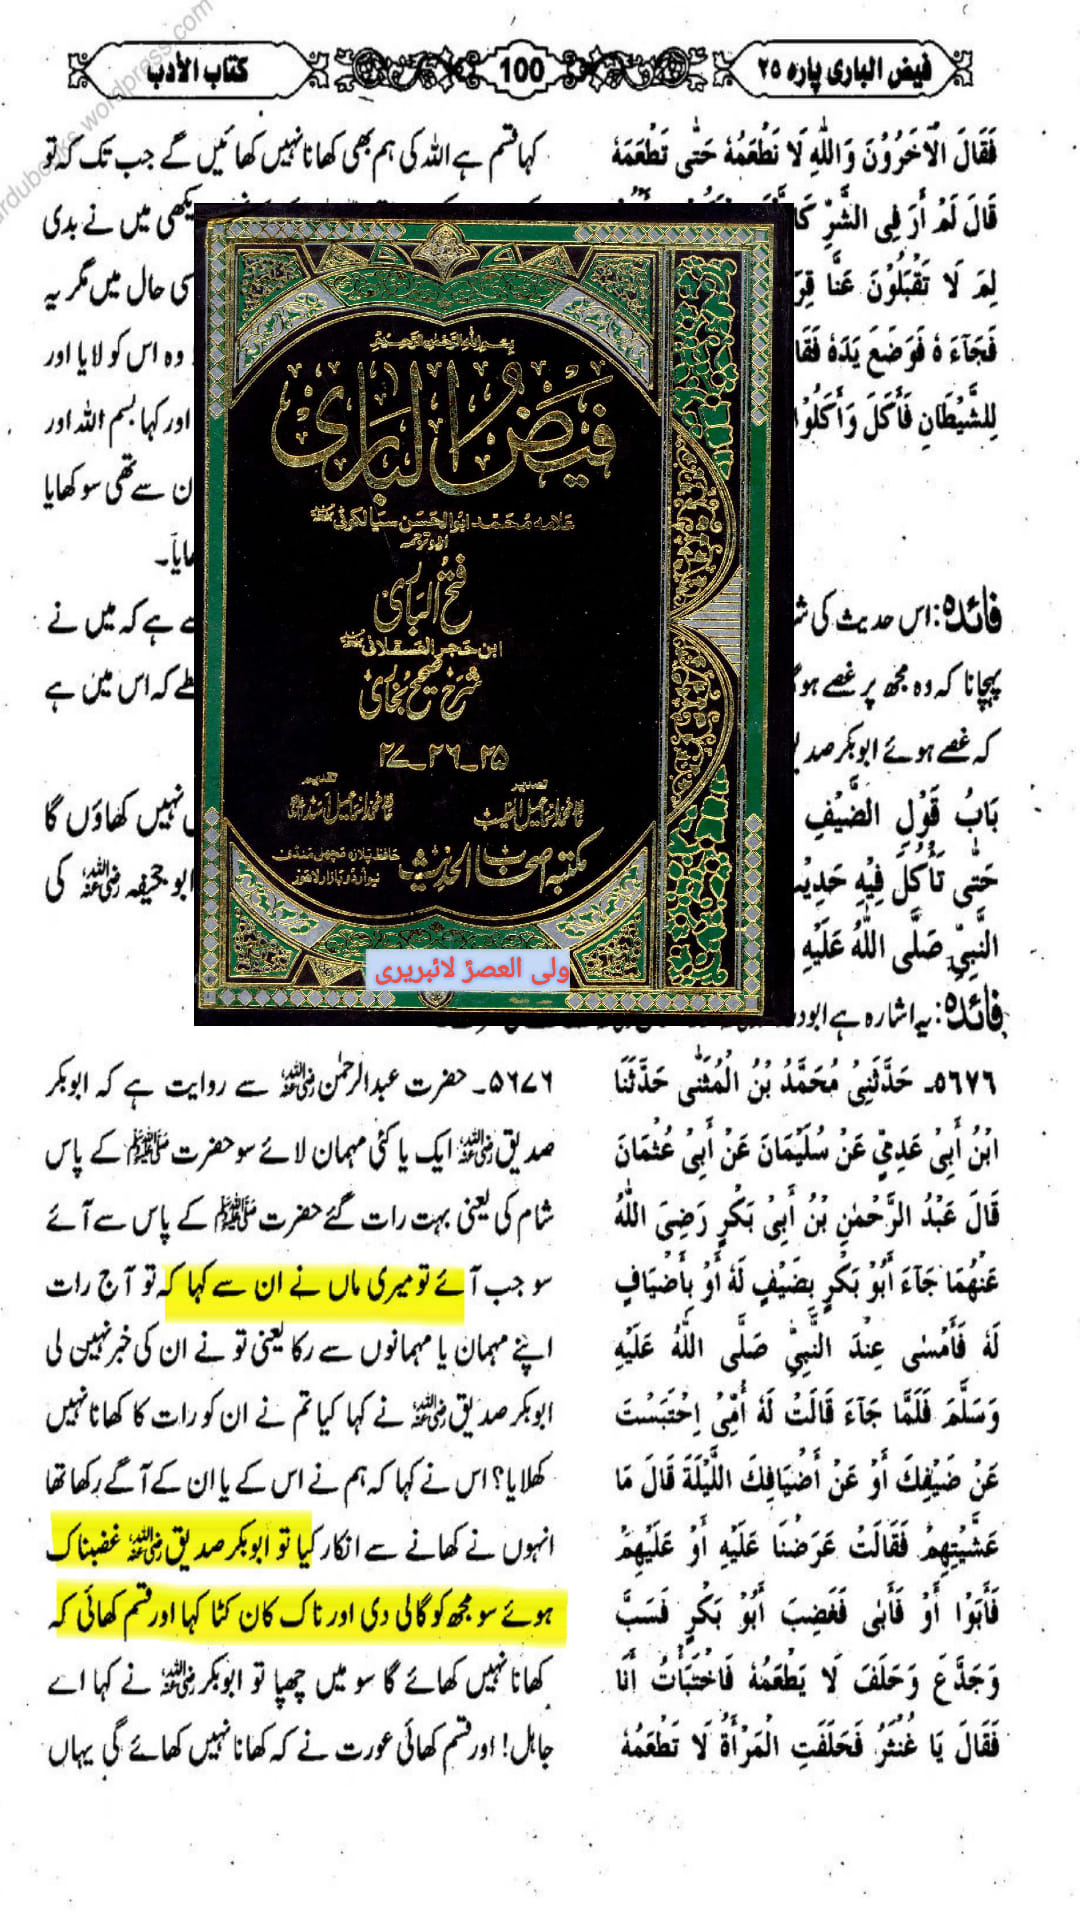 فیض الباری پارہ ۲۵
100
کتاب الأدب
فَقَالَ الْآخَرُوْنَ وَاللّٰهِ لَا نَطْعَمُهٗ حَتّٰى تَطْعَمَهٗ
قَالَ لَمْ أَرَ فِى الشَّرِّ
لِمَ لَا تَقْبَلُوْنَ عَنَّا
فَجَآءَ هٗ فَوَضَعَ يَدَهٗ
لِلشَّيْطَانِ فَأَكَلَ وَأَكَلُوْا
کہا قسم ہے اللہ کی ہم بھی کھانا نہیں کھائیں گے جب تک کہ تو
دیکھی میں نے بدی
سی حال میں مگر یہ
وہ اس کو لایا اور
اور کہا بسم اللہ اور
ن سے تھی سو کھایا
فائدہ: اس حدیث کی
سے ہے کہ میں نے
پہچانا کہ وہ مجھ پر غصے
طے کہ اس میں ہے
کہ غصے ہوئے ابوبکر
بَابُ قَوْلِ الضَّيْفِ
نہیں کھاؤں گا
حَتّٰى تَأْكُلَ فِيْهِ
ابو جحیفہ رضی اللہ عنہ کی
النَّبِيِّ صَلَّى اللّٰهُ عَلَيْهِ
فائدہ: یہ اشارہ ہے
بسم الله الرحمن الرحيم
فیض الباری
علامہ محمد ابو الحسن سیالکوٹی
اردو ترجمہ
فتح الباری
ابن حجر العسقلانی
شرح صحیح بخاری
۲۵_۲۶_۲۷
تصدیر
تقدیم
مکتبہ اصحاب الحدیث
حافظ پلازہ مچھلی منڈی
نیو اردو بازار لاہور
ولی العصرؑ لائبریری
۵٦٧٦۔ حَدَّثَنِيْ مُحَمَّدُ بْنُ الْمُثَنّٰى حَدَّثَنَا
ابْنُ أَبِيْ عَدِيٍّ عَنْ سُلَيْمَانَ عَنْ أَبِيْ عُثْمَانَ
قَالَ عَبْدُ الرَّحْمٰنِ بْنُ أَبِيْ بَكْرٍ رَضِيَ اللّٰهُ
عَنْهُمَا جَآءَ أَبُوْ بَكْرٍ بِضَيْفٍ لَهٗ أَوْ بِأَضْيَافٍ
لَهٗ فَأَمْسٰى عِنْدَ النَّبِيِّ صَلَّى اللّٰهُ عَلَيْهِ
وَسَلَّمَ فَلَمَّا جَآءَ قَالَتْ لَهٗ أُمِّيْ اِحْتَبَسْتَ
عَنْ ضَيْفِكَ أَوْ عَنْ أَضْيَافِكَ اللَّيْلَةَ قَالَ مَا
عَشَّيْتِهِمْ فَقَالَتْ عَرَضْنَا عَلَيْهِ أَوْ عَلَيْهِمْ
فَأَبَوْا أَوْ فَأَبٰى فَغَضِبَ أَبُوْ بَكْرٍ فَسَبَّ
وَجَدَّعَ وَحَلَفَ لَا يَطْعَمُهٗ فَاخْتَبَأْتُ أَنَا
فَقَالَ يَا غُنْثَرُ فَحَلَفَتِ الْمَرْأَةُ لَا تَطْعَمُهٗ
۵٦٧٦۔ حضرت عبدالرحمٰن رضی اللہ عنہ سے روایت ہے کہ ابوبکر
صدیق رضی اللہ عنہ ایک یا کئی مہمان لائے سو حضرت ﷺ کے پاس
شام کی یعنی بہت رات گئے حضرت ﷺ کے پاس سے آئے
سو جب آئے تو میری ماں نے ان سے کہا کہ تو آج رات
اپنے مہمان یا مہمانوں سے رکا یعنی تو نے ان کی خبر نہیں لی
ابوبکر صدیق رضی اللہ عنہ نے کہا کیا تم نے ان کو رات کا کھانا نہیں
کھلایا؟ اس نے کہا کہ ہم نے اس کے یا ان کے آگے رکھا تھا
انہوں نے کھانے سے انکار کیا تو ابوبکر صدیق رضی اللہ عنہ غضبناک
ہوئے سو مجھ کو گالی دی اور ناک کان کٹا کہا اور قسم کھائی کہ
کھانا نہیں کھائے گا سو میں چھپا تو ابوبکر رضی اللہ عنہ نے کہا اے
جاہل! اور قسم کھائی عورت نے کہ کھانا نہیں کھائے گی یہاں